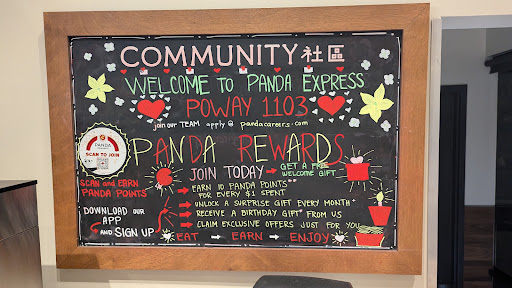 COMMUNITY 社區
WELCOME TO PANDA EXPRESS
POWAY 1103
join our TEAM apply @ pandacareers.com
PANDA REWARDS
PANDA
SCAN TO JOIN
JOIN TODAY → GET A FREE
WELCOME GIFT
SCAN and EARN
PANDA POINTS
→ EARN 10 PANDA POINTS**
FOR EVERY $1 SPENT
→ UNLOCK A SURPRISE GIFT EVERY MONTH*
→ RECEIVE A BIRTHDAY GIFT* FROM US
→ CLAIM EXCLUSIVE OFFERS JUST FOR YOU
DOWNLOAD OUR
APP
AND SIGN UP
EAT — EARN — ENJOY